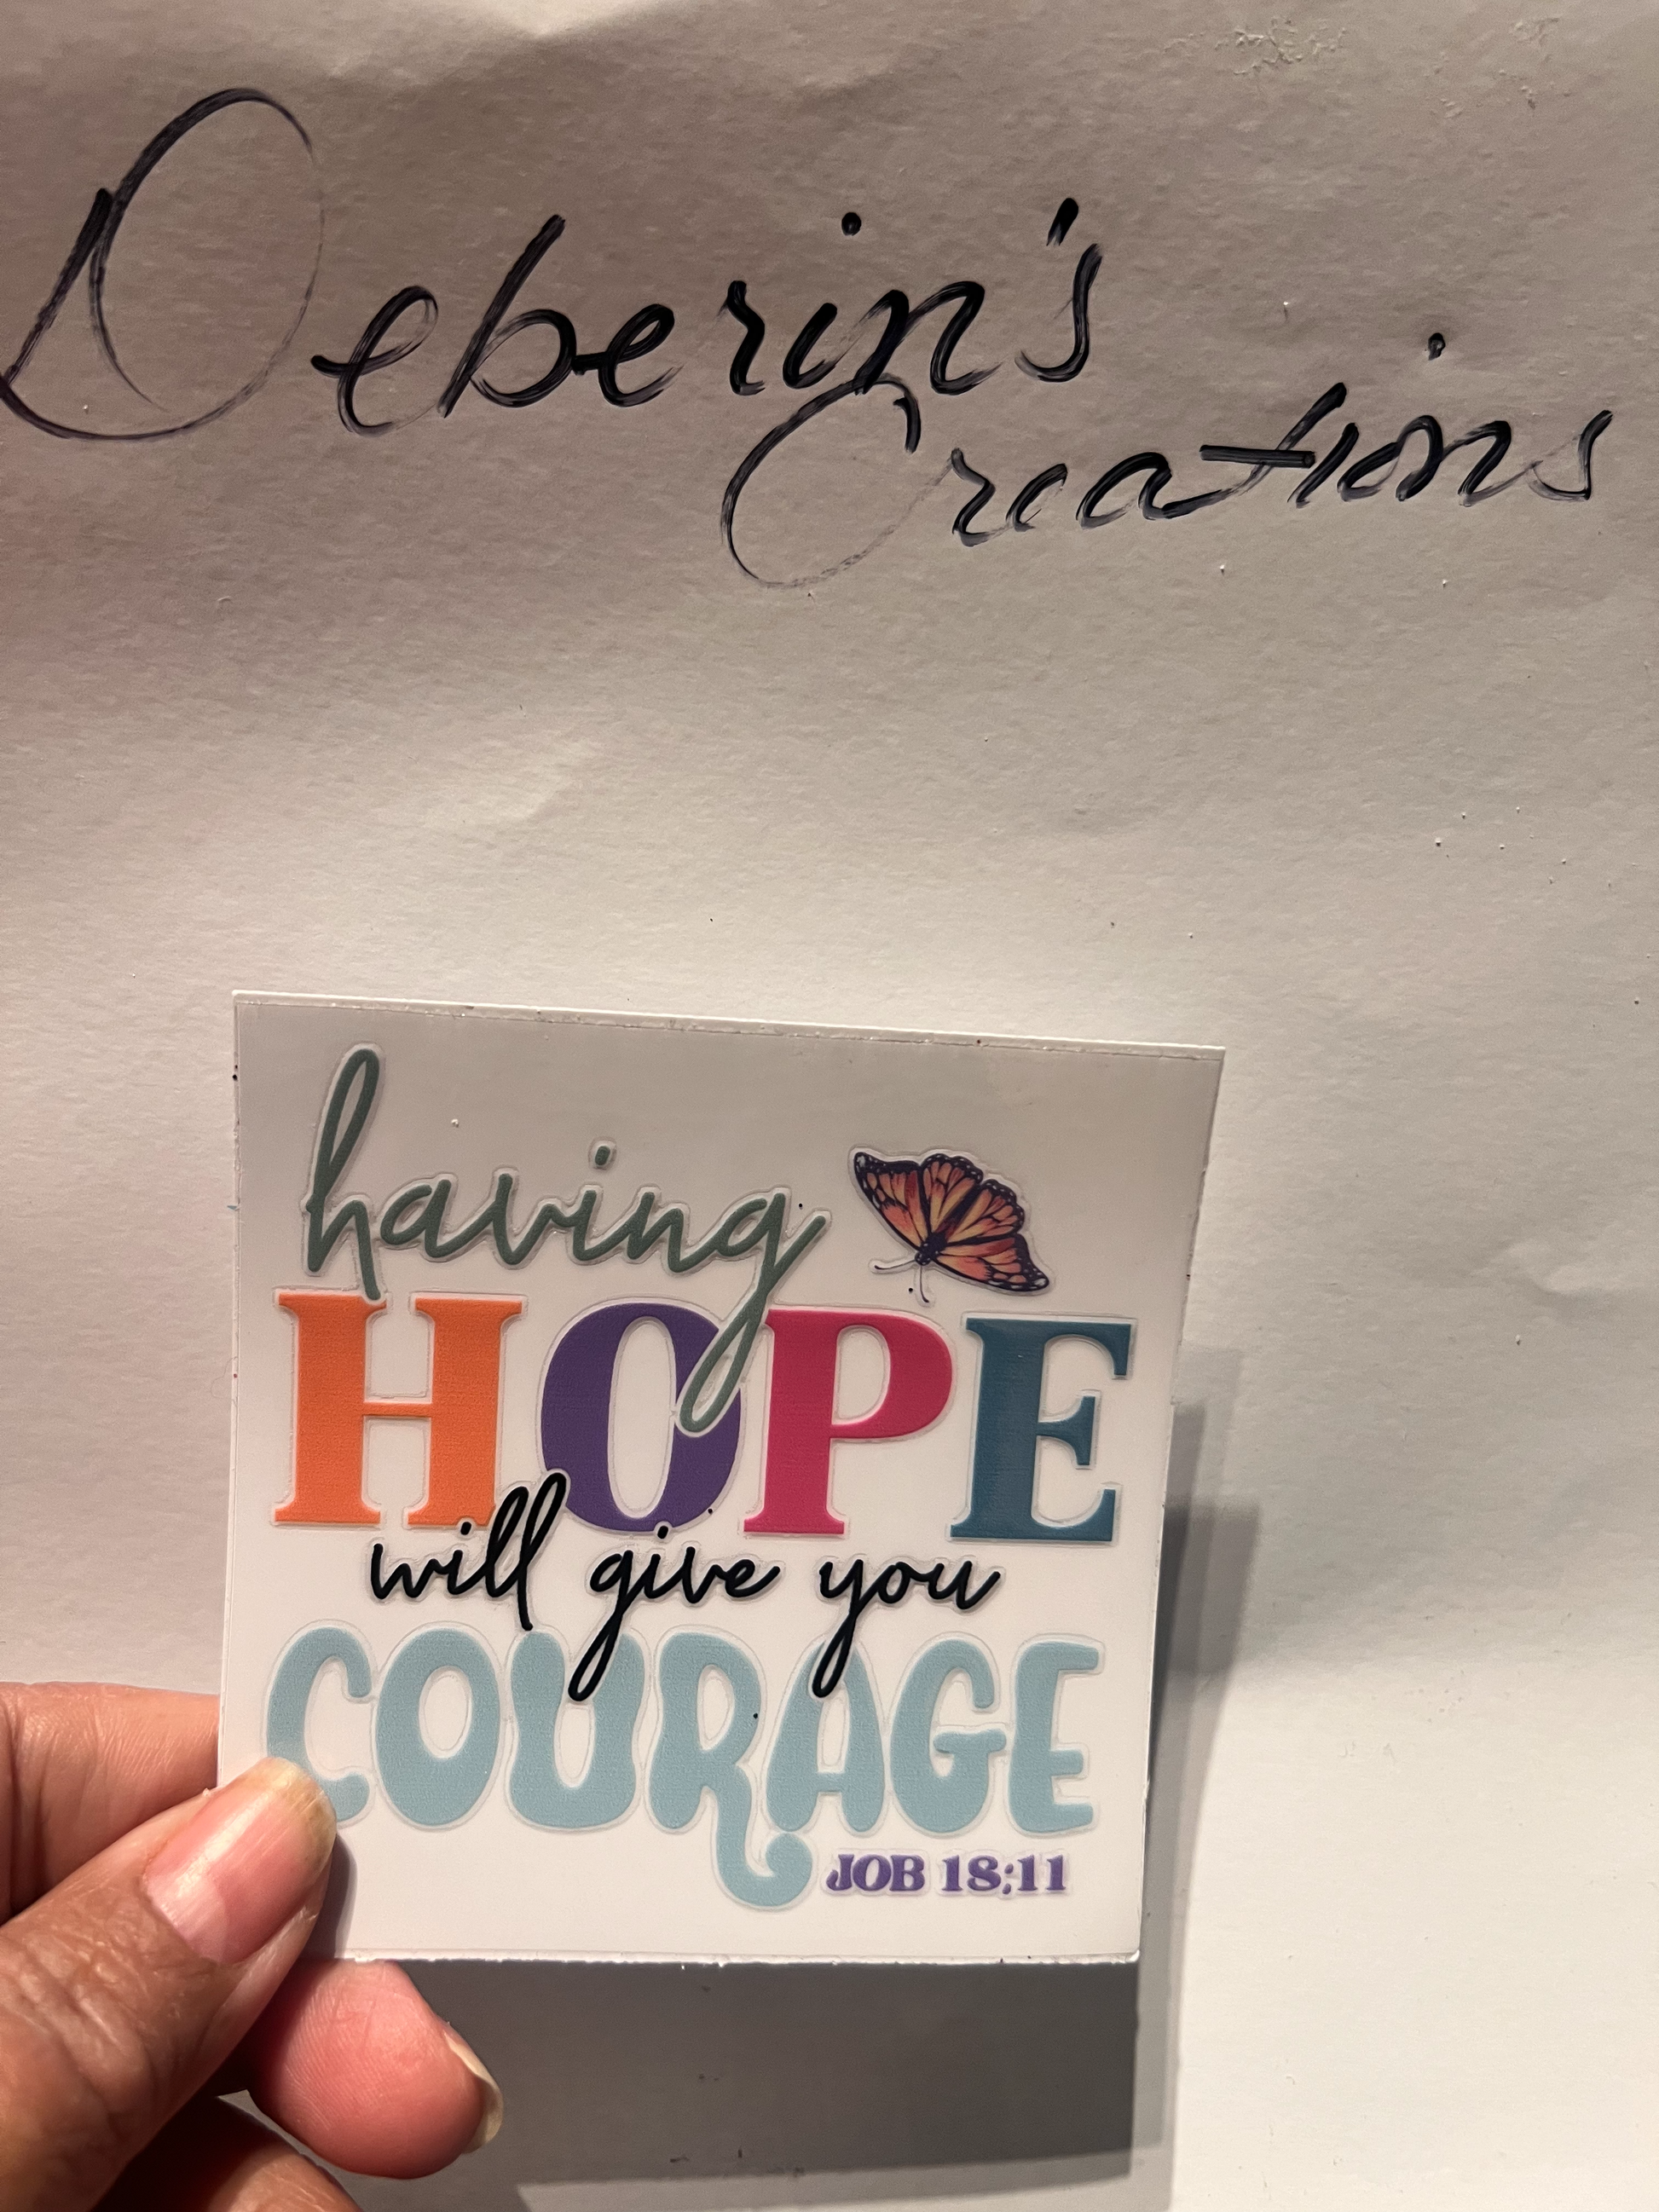 Deberin's
Creations
having
HOPE
will give you
COURAGE
JOB 18:11